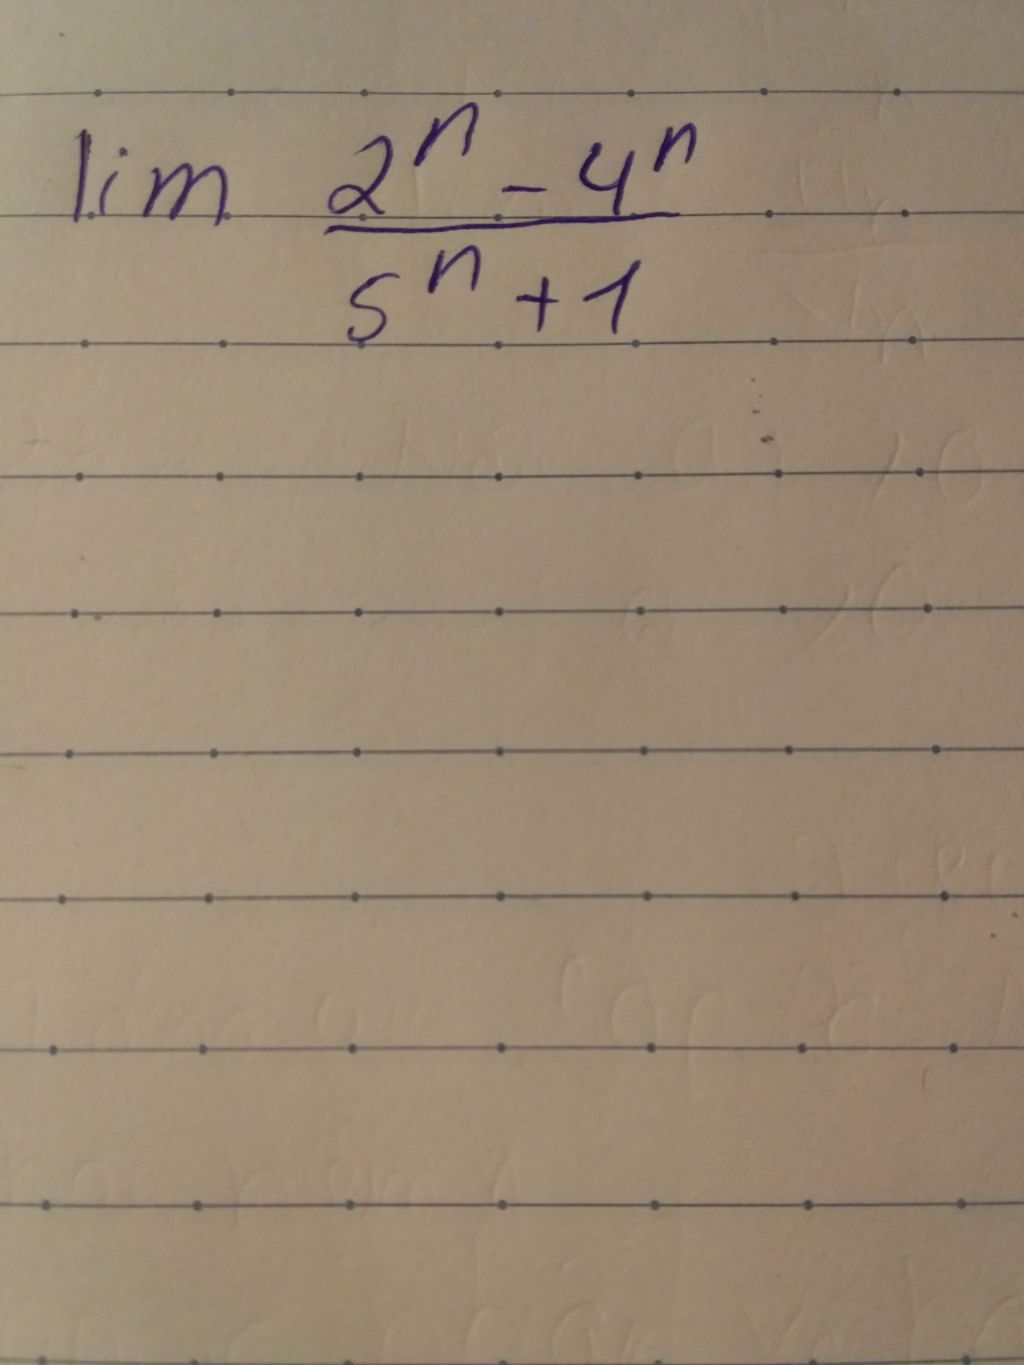 lim (2^n - 4^n)/(5^n + 1)